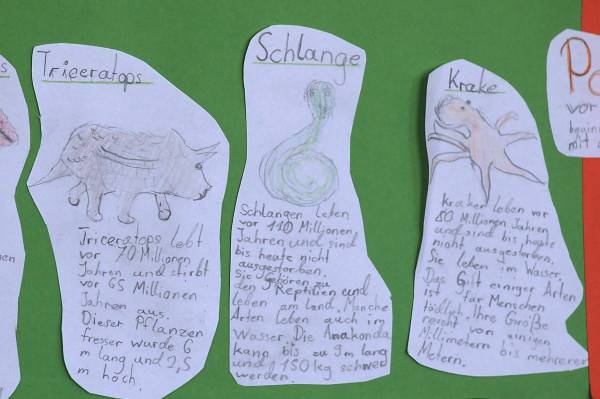 Triceratops
Triceratops lebt
vor 70 Millionen
Jahren und stirbt
vor 65 Millionen
Jahren aus.
Dieser Pflanzen
fresser wurde 6
m lang und 2,5
m hoch.
Schlange
Schlangen leben
vor 110 Millionen
Jahren und sind
bis heute nicht
ausgestorben.
Sie gehören zu
den Reptilien und
leben am land. Manche
Arten leben auch im
Wasser. Die Anakonda
kann bis zu 9m lang
und 150 kg schwer
werden.
Krake
Kraken leben vor
80 Millionen Jahren
und sind bis heute
nicht ausgestorben.
Sie leben im Wasser.
Das Gift einiger Arten
ist für Menschen
tödlich. Ihre Größe
reicht von einigen
Millimetern bis mehreren
Metern.
vor
mit